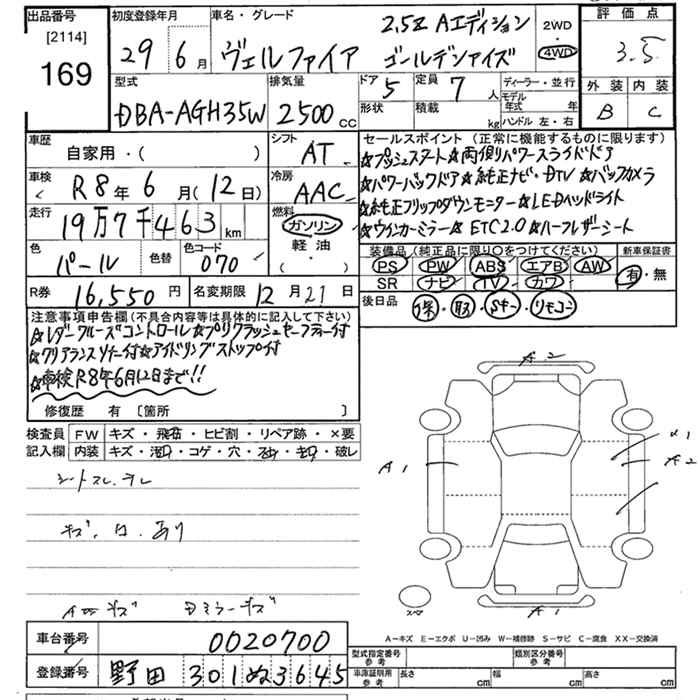 出品番号 初度登録年月 車名・グレード 2.5Z Aエディション 2WD 評価点
[2114] 29年 6月 ヴェルファイア ゴールデンアイズ 4WD 3.5
169
型式 排気量 ドア 5 定員 7人 ディーラー・並行 外装 内装
DBA-AGH35W 2500cc 形状 積載 kg モデル年式 年 B C
ハンドル 左・右
車歴 シフト セールスポイント (正常に機能するものに限ります)
自家用・( ) AT ☆プッシュスタート☆両側パワースライドドア
車検 R8年6月(12日) 冷房 AAC ☆パワーバックドア☆純正ナビ・DTV☆バックカメラ
走行 19万7千463km 燃料 ガソリン ☆純正フリップダウンモニター☆LEDヘッドライト
軽油 ☆ウインカーミラー☆ETC2.0☆ハーフレザーシート
・( )
色 パール 色替 色コード 070 装備品 (純正品に限り○をつけてください) 新車保証書
PS PW ABS エアB AW 有・無
SR ナビ TV カワ
R券 16,550円 名変期限 12月21日 後日品 保・取・Sキー・リモコン
注意事項申告欄(不具合内容等は具体的に記入して下さい)
☆レーダークルーズコントロール☆プリクラッシュセーフティー付
☆クリアランスソナー付☆アイドリングストップ付
☆車検R8年6月12日まで!!
修復歴 有 [箇所 ]
検査員 FW キズ・飛石・ヒビ割・リペア跡・×要
記入欄 内装 キズ・コゲ・穴・破レ
シートスレ、テレ
キズ、凹、あり
A2
A1
A2
A1
スペア
A-キズ E-エクボ U-凹み W-補修跡 S-サビ C-腐食 XX-交換済
車台番号 0020700
登録番号 野田 301ぬ3645
型式指定番号 参考 類別区分番号 参考
車庫証明用 参考 長さ cm 幅 cm 高さ cm